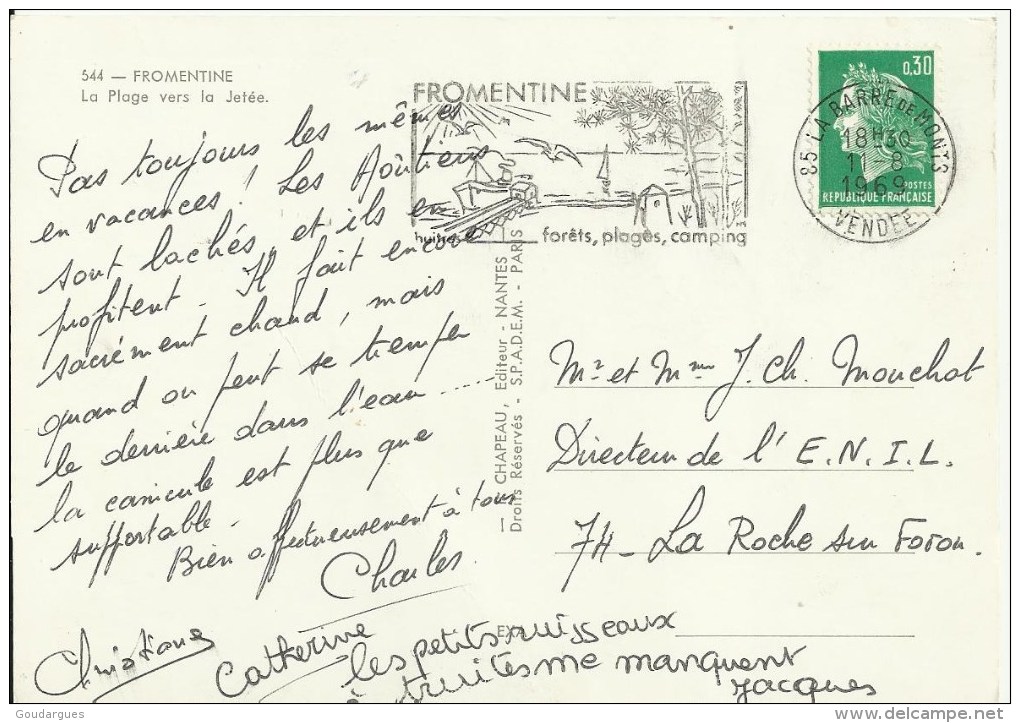 544 — FROMENTINE
La Plage vers la Jetée.
Pas toujours les mêmes
en vacances ! Les Aôutiens
sont lachés, et ils en
profitent - Il fait encore
sacrément chaud, mais
quand on peut se tremper
le derrière dans l'eau ......
la canicule est plus que
supportable -
Bien affectueusement à tous
Charles
Christiane
Catherine
les petits ruisseaux
à truites me manquent
Jacques
FROMENTINE
huitres
forêts, plages, camping
85 LA BARRE DE MONTS
18H30
1 - 8
1969
VENDEE
0,30
POSTES
REPUBLIQUE FRANÇAISE
CHAPEAU, Editeur - NANTES
Droits Réservés - S.P.A.D.E.M. - PARIS
Mr et Mme J. Ch. Mouchot
Directeur de l' E.N.I.L.
74 - La Roche sur Foron.
Goudargues
delcampe.net